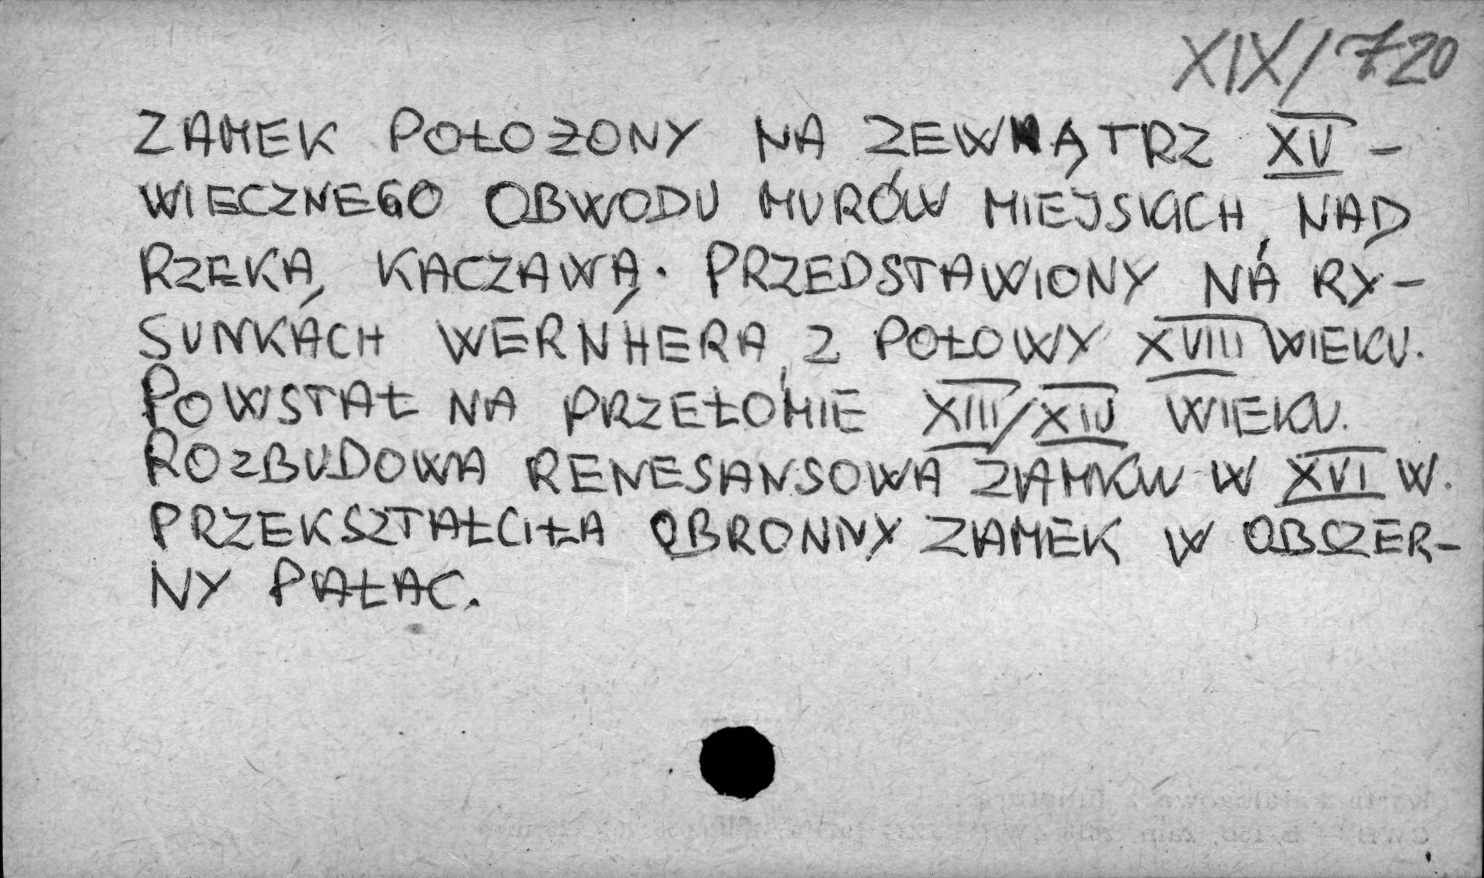 XIX/720
ZAMEK POŁOŻONY NA ZEWNĄTRZ XV-
WIECZNEGO OBWODU MURÓW MIEJSKICH, NAD
RZEKĄ KACZAWĄ. PRZEDSTAWIONY NA RY-
SUNKACH WERNHERA, Z POŁOWY XVIII WIEKU.
POWSTAŁ NA PRZEŁOMIE XIII/XIV WIEKU.
ROZBUDOWA RENESANSOWA ZAMKU W XVI W.
PRZEKSZTAŁCIŁA OBRONNY ZAMEK W OBSZER-
NY PAŁAC.